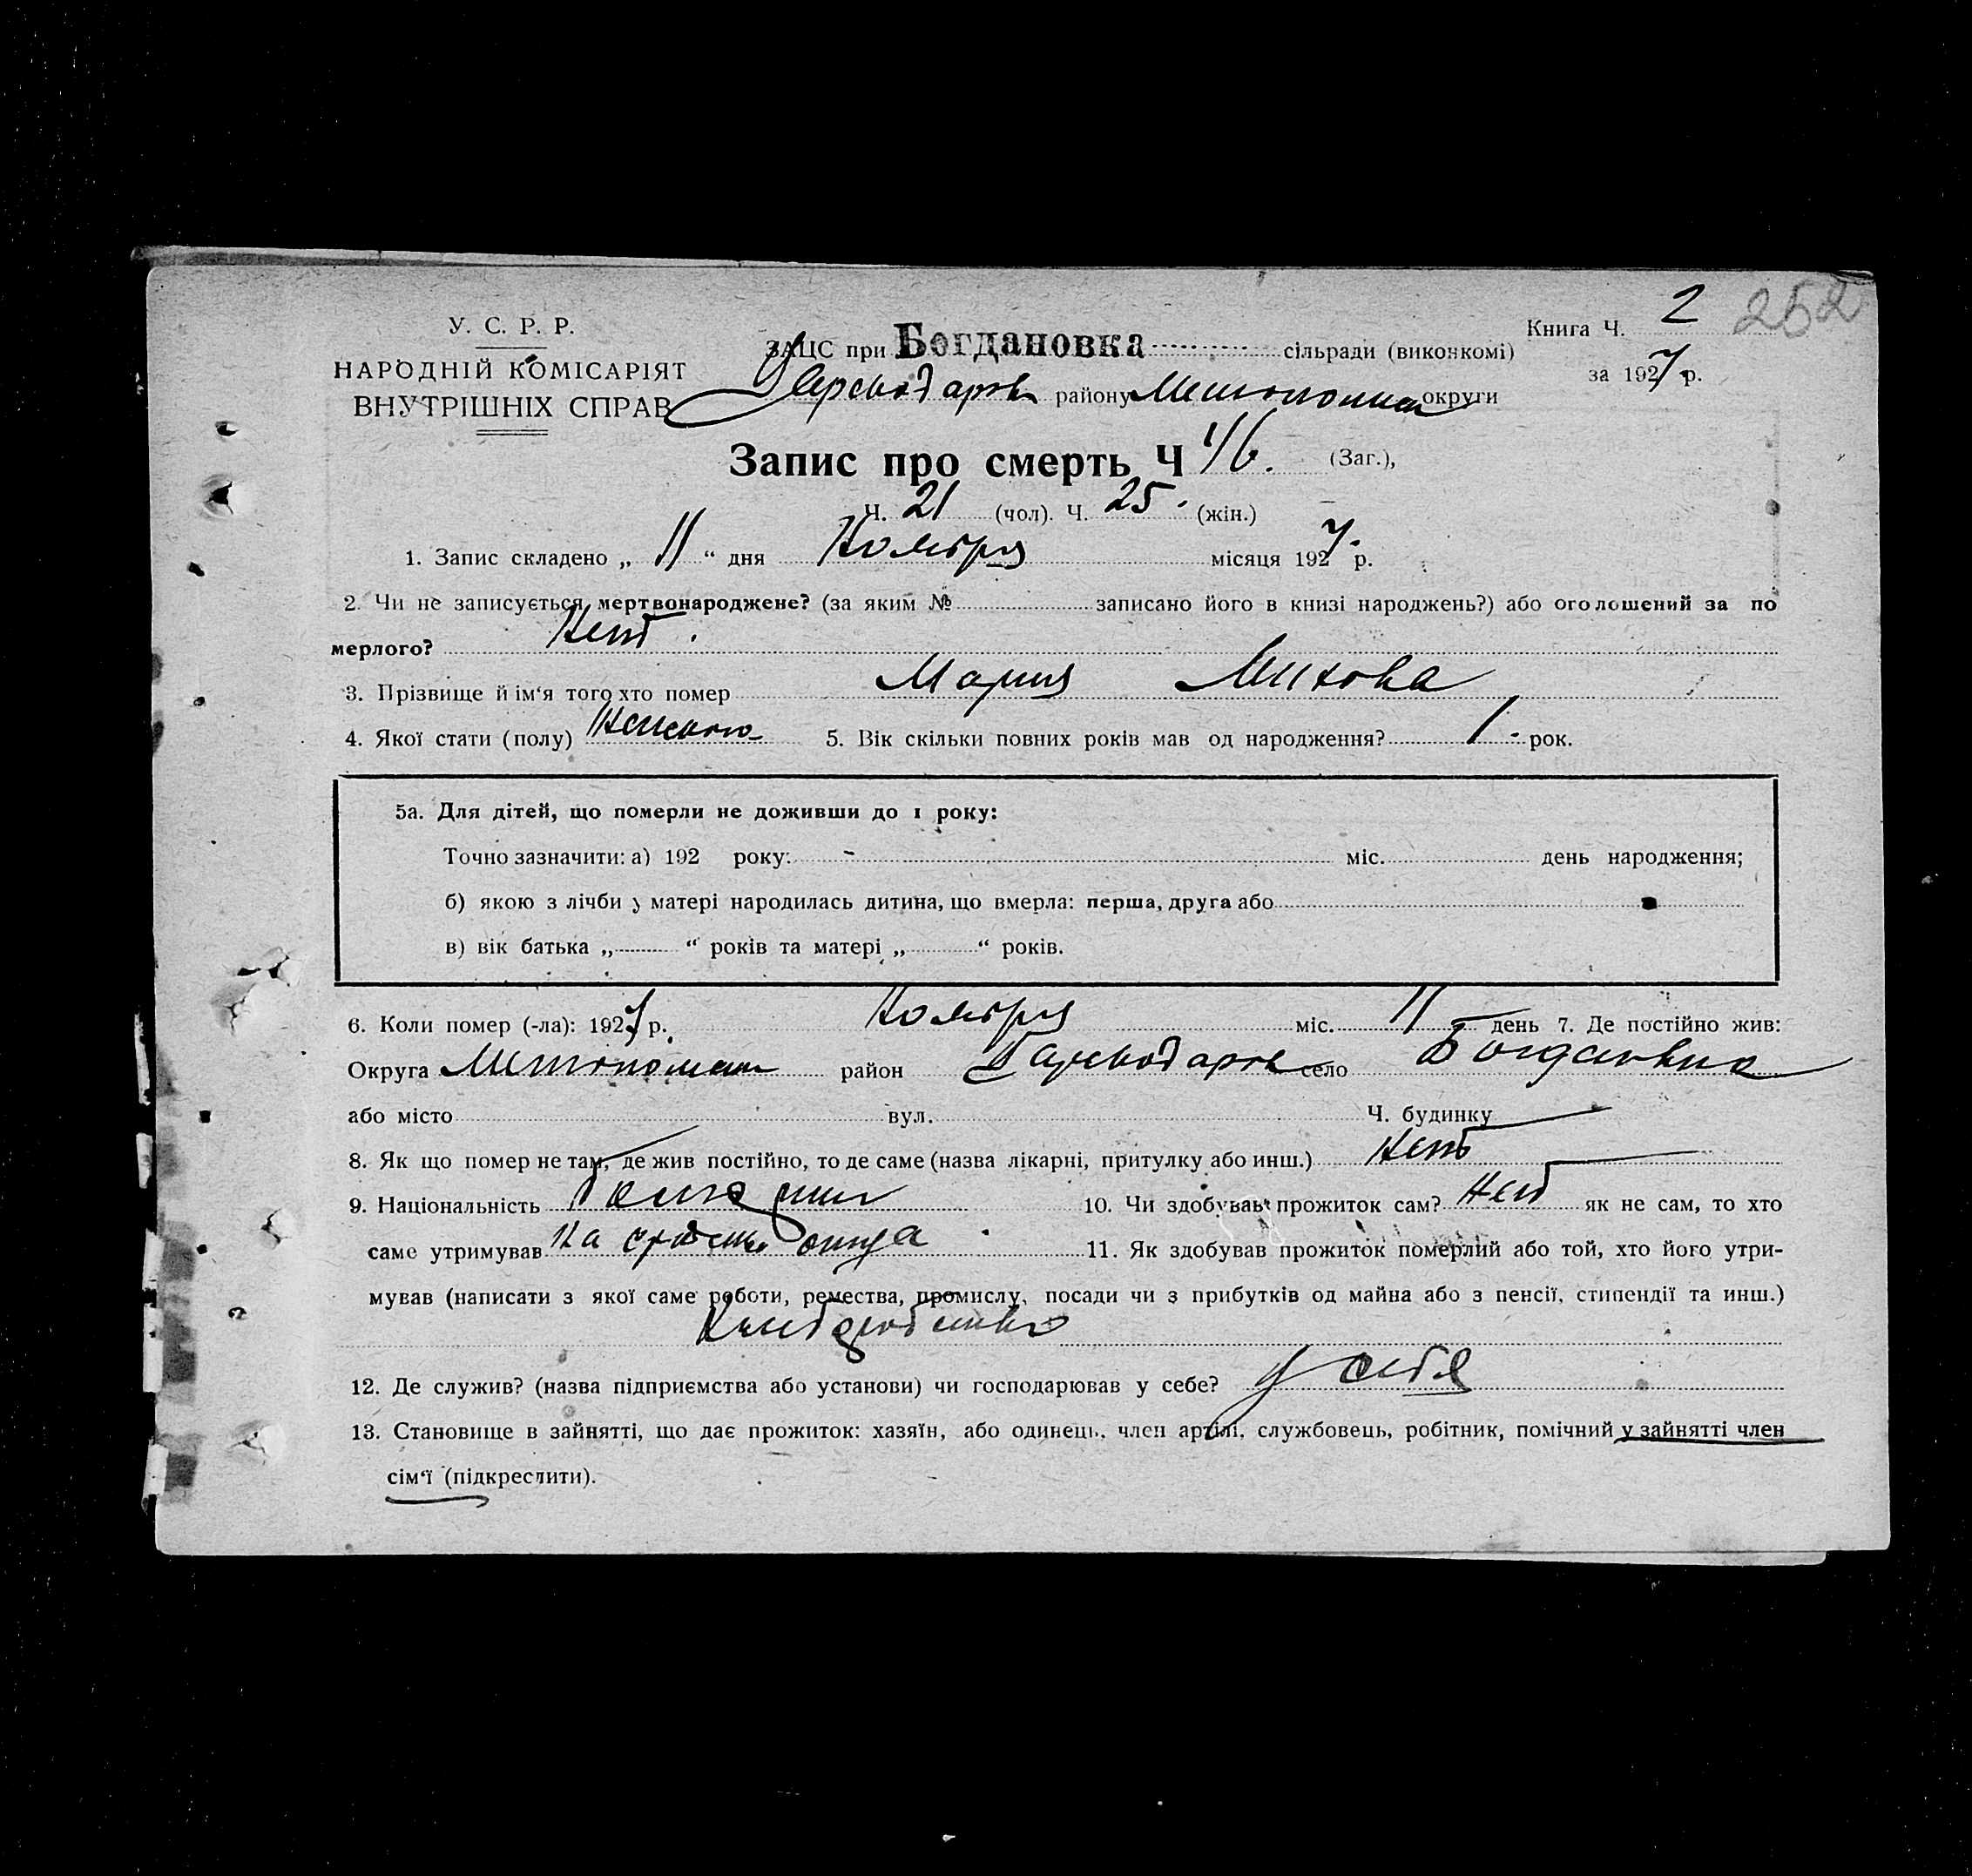 У. С. Р. Р.
НАРОДНІЙ КОМІСАРІЯТ
ВНУТРІШНІХ СПРАВ
Книга Ч. 2 252
за 1927 р.
ЗАЦС при Богдановка сільради (виконкомі)
району округи
Запис про смерть Ч 46. (Заг.),
Ч. 21 (чол). Ч. 25. (жін.)
1. Запис складено „ 11 “ дня Ноября місяця 1927 р.
2. Чи не записується мертвонароджене? (за яким № записано його в книзі народжень?) або оголошений за по
мерлого? Нет.
3. Прізвище й ім‘я того хто помер Мария Митова
4. Якої стати (полу) Женского 5. Вік скільки повних років мав од народження? 1. рок.
5а. Для дітей, що померли не доживши до 1 року:
Точно зазначити: а) 192 року: - міс. день народження;
б) якою з лічби у матері народилась дитина, що вмерла: перша, друга або
в) вік батька „ “ років та матері „ “ років.
6. Коли помер (-ла): 1927 р. Ноября міс. 11 день 7. Де постійно жив:
Округа район село Богдановка
або місто вул. Ч. будинку
8. Як що помер не там, де жив постійно, то де саме (назва лікарні, притулку або инш.) Нет
9. Національність 10. Чи здобував прожиток сам? Нет як не сам, то хто
саме утримував На средства отца 11. Як здобував прожиток померлий або той, хто його утри-
мував (написати з якої саме роботи, ремества, промислу, посади чи з прибутків од майна або з пенсії, стипендії та инш.)
12. Де служив? (назва підприємства або установи) чи господарював у себе? у себя
13. Становище в зайнятті, що дає прожиток: хазяїн, або одинець, член артілі, службовець, робітник, помічний у зайнятті член
сім‘ї (підкреслити).